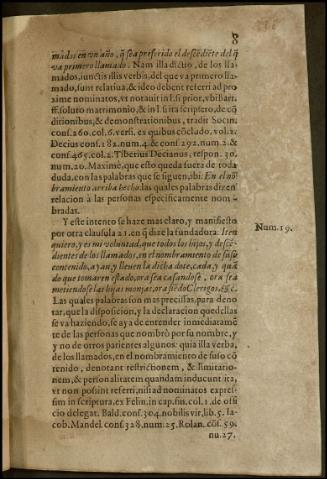 8
mados en vn año, q̃ sea preferido el descẽdiẽte del q̃
va primero llamado. Nam illa dictio, de los lla-
mados, iunctis illis verbis, del que va primero lla-
mado, sunt relatiua, & ideo debent referri ad pro
xime nominatos, vt notauit in l. si prior, vbi Bart.
ff. soluto matrimonio, & in l. si ita scriptum, de cõ
ditionibus, & demonstrationibus, tradit Socin.
cons. 260. col. 6. versi. ex quibus cõcludo, vol. 2.
Decius cons. 182. num. 4. & cons. 292. num. 2.
& cons. 465. col. 2. Tiberius Decianus, respon. 30.
num. 20. Maximè, que esto queda fuera de toda
duda, con las palabras que se siguen, ibi: En el no̅
bramiento arriba hecho. las quales palabras dizen
relacion à las personas especificamente nom-
bradas.
Y este intento se haze mas claro, y manifiesto
por otra clausula 21. en q̃ dize la fundadora: Iten
quiero, y es mi voluntad, que todos los hijos, y descẽ
dientes de los llamados, en el nombramiento de suso
contenido, ayan, y lleuen la dicha dote, cada, y quã
do que tomaren estado, ora sea casandose, ora sea
metiendose las hijas monjas, ora siẽdo Clerigos, &c.
Las quales palabras son mas precissas, para deno
tar, que la disposicion, y la declaracion que della
se va haziendo, se aya de entender inmediatamẽ
te de las personas que nombrò por su nombre, y
y no de otros parientes algunos: quia illa verba,
de los llamados, en el nombramiento de suso cõ
tenido, denotant restrictionem, & limitatio-
nem, & personalitatem quandam inducunt ita,
vt non possint referri, nisi ad nominatos expres-
sim in scriptura, ex Felin. in cap. fin. col. 1. de offi
cio delegat. Bald. cons. 304. nobilis vir, lib. 5. Ia-
cob. Mandel. cons. 328. num. 25. Rolan. cõs. 59.
nu. 27.
Num. 19.